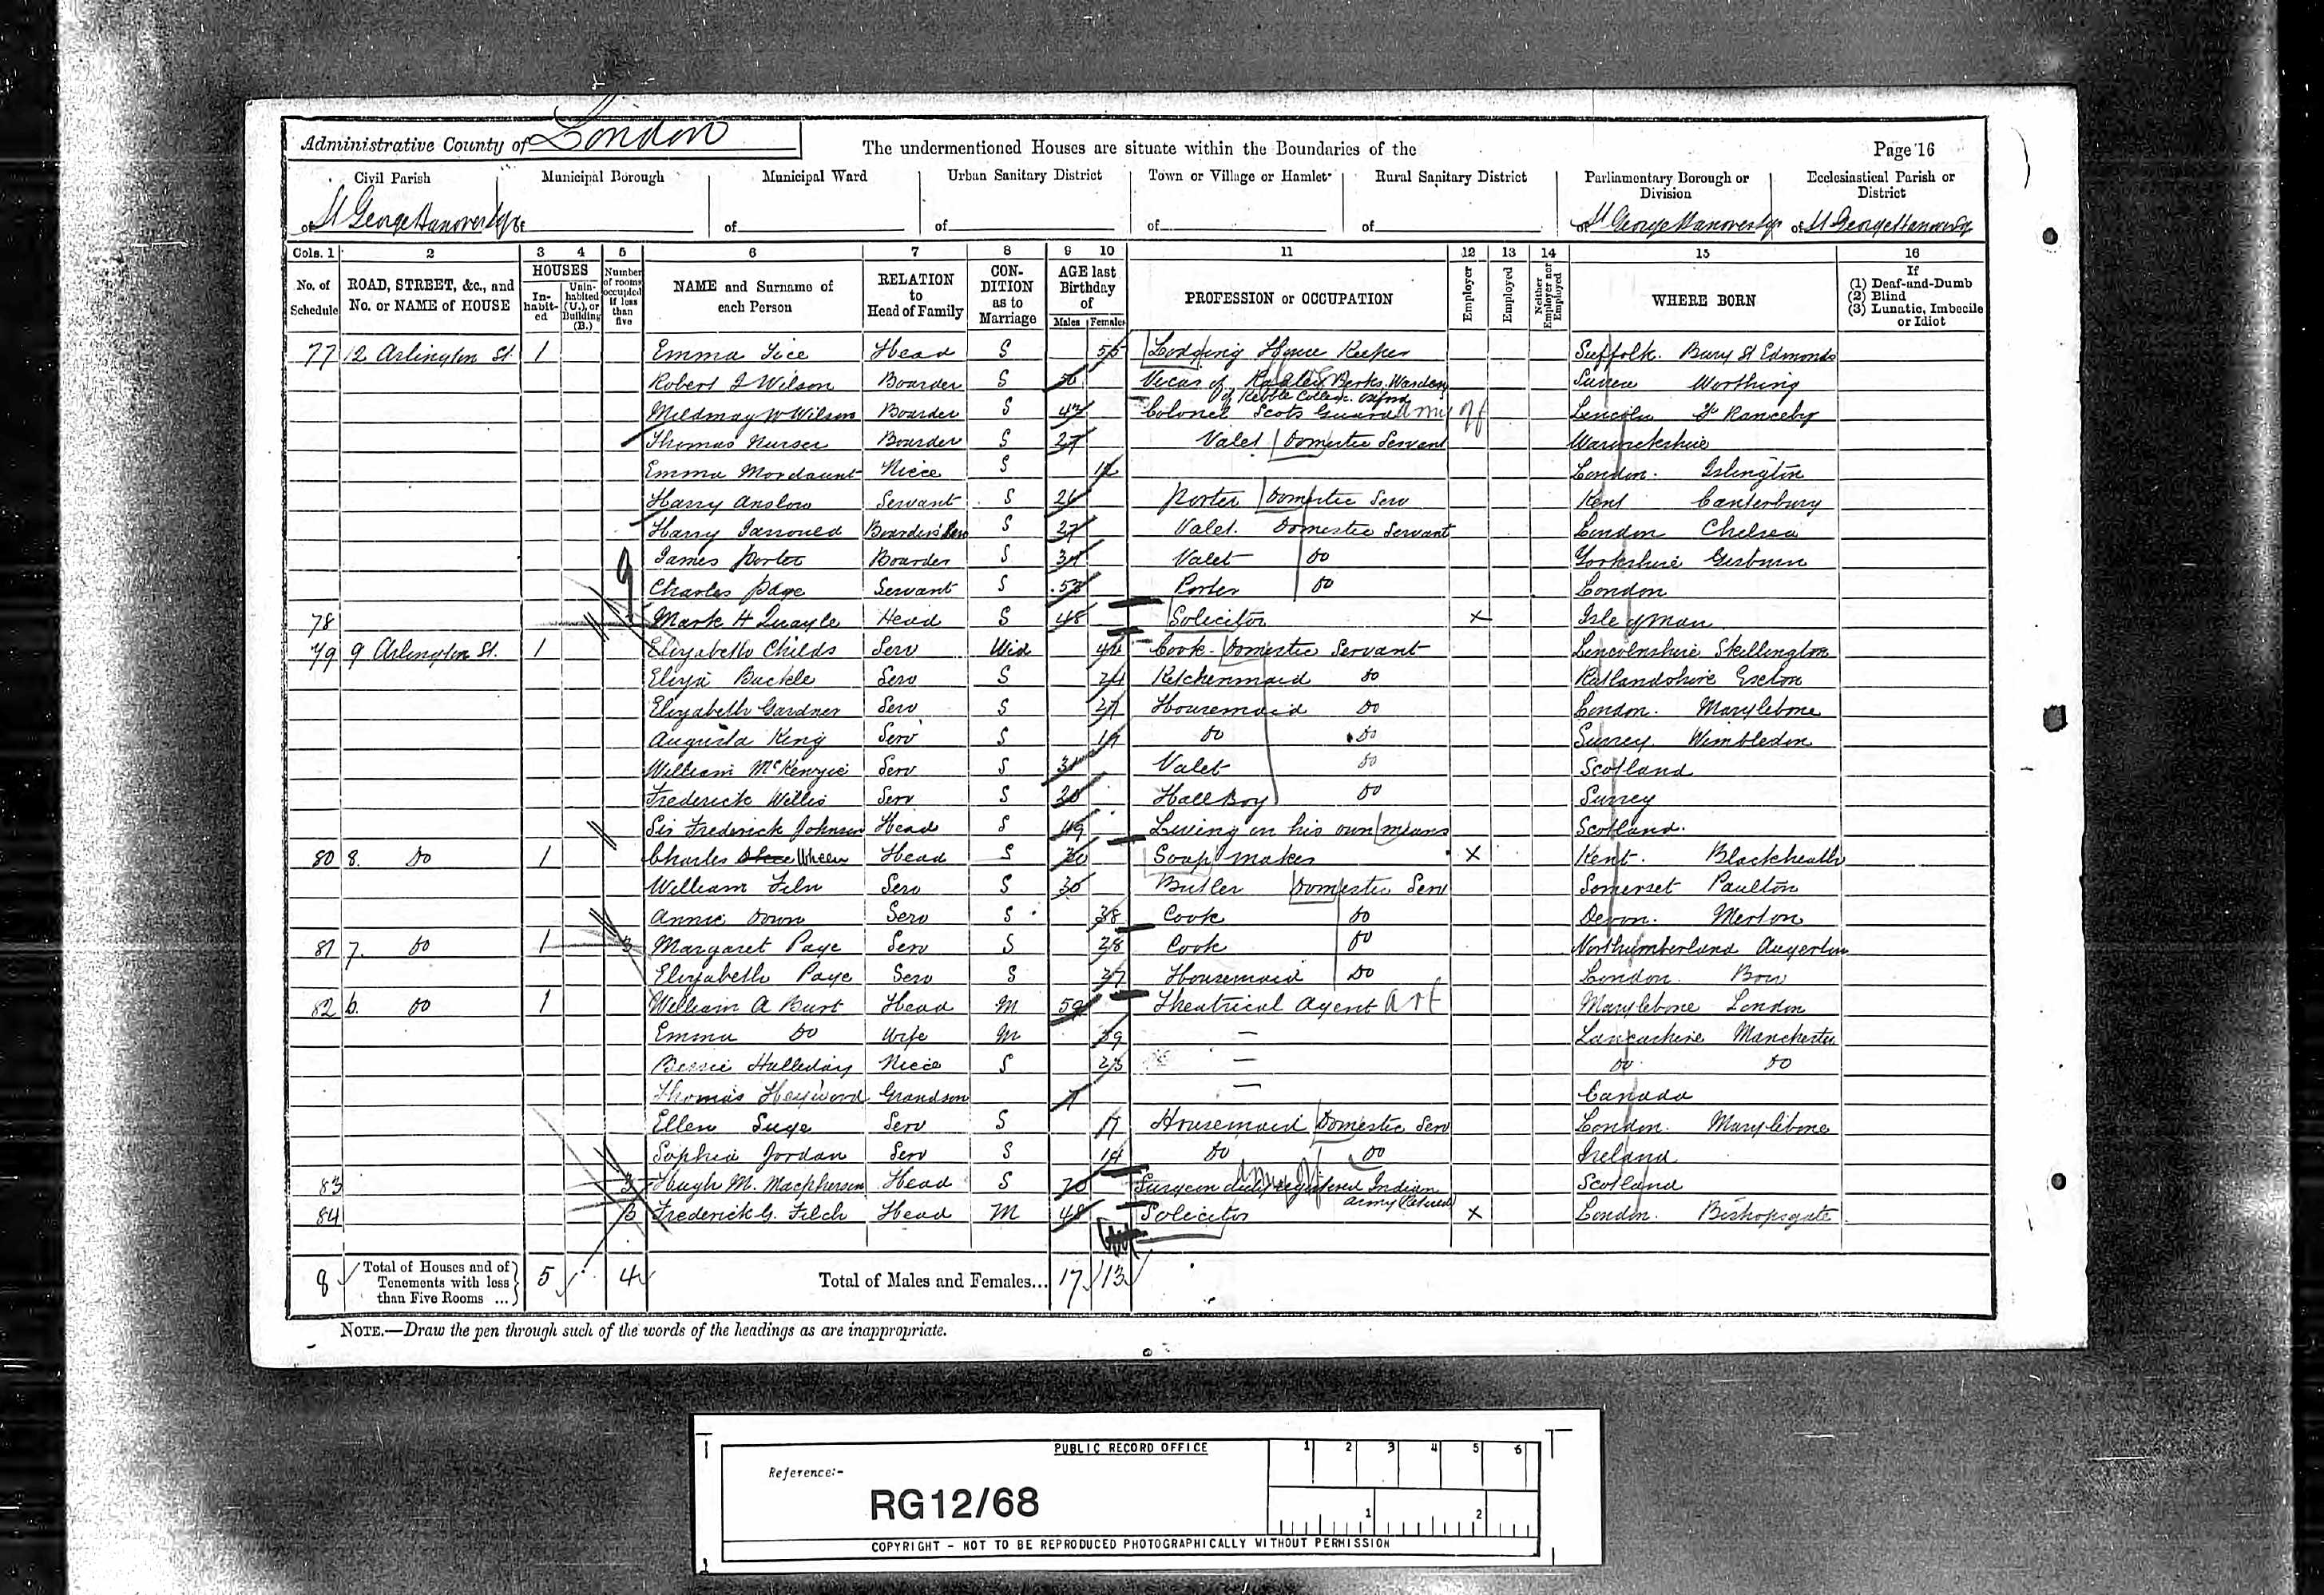 Administrative County of London
The undermentioned Houses are situate within the Boundaries of the
Page 16
Civil Parish Municipal Borough Municipal Ward Urban Sanitary District Town or Village or Hamlet Rural Sanitary District Parliamentary Borough or Division Ecclesiastical Parish or District
of St George Hanover Sqr of of of of of of St George Hanover Sqr of St George Hanover Sq
Cols. 1 2 3 4 5 6 7 8 9 10 11 12 13 14 15 16
No. of Schedule ROAD, STREET, &c., and No. or NAME of HOUSE HOUSES Inhabited Uninhabited (U.), or Building (B.) Number of rooms occupied if less than five NAME and Surname of each Person RELATION to Head of Family CONDITION as to Marriage AGE last Birthday of Males Females PROFESSION or OCCUPATION Employer Employed Neither Employer nor Employed WHERE BORN If (1) Deaf-and-Dumb (2) Blind (3) Lunatic, Imbecile or Idiot
77 12 Arlington St. 1 Emma Head S 55 Lodging House Keeper Suffolk. Bury St Edmonds
Robert J Wilson Boarder S 50 Vicar of Radley Berks, Warden of Keble College Oxford Worthing
Mildmay W Wilson Boarder S 43 Colonel Scots Guard Army Off Lincoln Ranceby
Thomas Nurser Boarder S 27 Valet Domestic Servant Warwickshire
Emma Mordaunt Niece S 12 London. Islington
Harry Anslow Servant S 26 Porter Domestic Serv Kent Canterbury
Harry Boarders Serv S 27 Valet. Domestic Servant London Chelsea
James Porter Boarder S Valet Do Yorkshire Gisburn
Charles Page Servant S 53 Porter Do London
78 Mark H Quayle Head S 48 Solicitor X Isle of Man
79 9 Arlington St. 1 Elizabeth Childs Serv Wid Cook Domestic Servant Lincolnshire Skillington
Eliza Buckle Serv S 24 Kitchenmaid Do Rutlandshire
Elizabeth Gardner Serv S 27 Housemaid Do London. Marylebone
Augusta King Serv S 19 Do Do Surrey Wimbledon
William McKenzie Serv S Valet Do Scotland
Frederick Willis Serv S 20 Hall Boy Do Surrey
Sir Frederick Johnson Head S 49 Living on his own means Scotland.
80 8. Do 1 Charles Wheen Head S 30 Soap maker X Kent. Blackheath
William Serv S 30 Butler Domestic Serv Somerset Paulton
Annie Down Serv S 38 Cook Do Devon. Merton
81 7. Do 1 3 Margaret Paye Serv S 28 Cook Do Northumberland
Elizabeth Paye Serv S 37 Housemaid Do London. Bow
82 6. Do 1 William A Burt Head M 59 Theatrical Agent Art Marylebone London
Emma Do Wife M 59 — Lancashire Manchester
Bessie Halleday Niece S 23 — Do Do
Thomas Heywood Grandson 7 — Canada
Ellen Suge Serv S 17 Housemaid Domestic Serv London. Marylebone
Sophia Jordan Serv S 14 Do Do Ireland
83 3 Hugh M. Macpherson Head S 70 Surgeon duly registered Indian Army Retired Scotland
84 Frederick G. Filch Head M 48 Solicitor X London. Bishopsgate
8 Total of Houses and of Tenements with less than Five Rooms ... 5 4 Total of Males and Females... 17 13
NOTE.—Draw the pen through such of the words of the headings as are inappropriate.
PUBLIC RECORD OFFICE 1 2 3 4 5 6
Reference:-
RG12/68
1 2
COPYRIGHT - NOT TO BE REPRODUCED PHOTOGRAPHICALLY WITHOUT PERMISSION